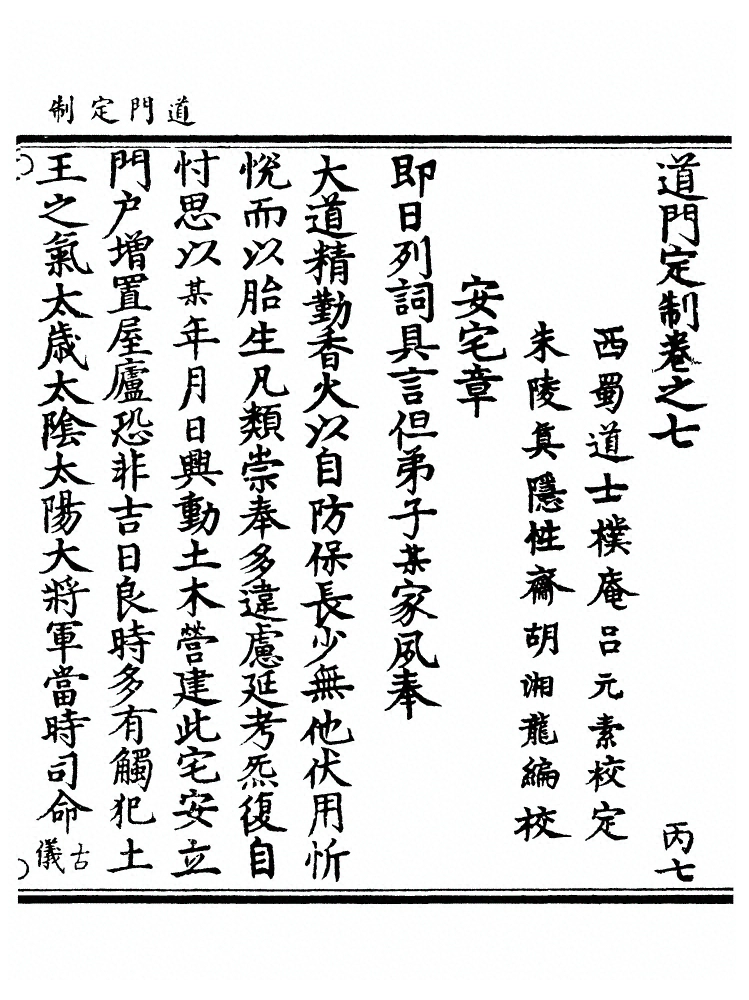 道門定制
道門定制卷之七　丙七
西蜀道士樸庵呂元素校定
朱陵真隱性齋胡湘龍編校
安宅章
即日列詞具言但弟子某家夙奉
大道精勤香火以自防保長少無他伏用忻
悅而以胎生凡類崇奉多違慮延考炁復自
忖思以某年月日興動土木營建此宅安立
門户增置屋廬恐非吉日良時多有觸犯土
王之氣太歲太陰太陽大將軍當時司命古儀